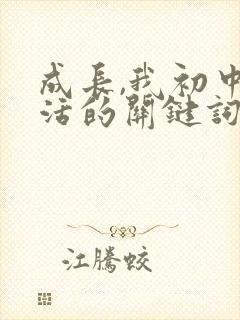 成长,我初中
活的關鍵詞
江騰蛟